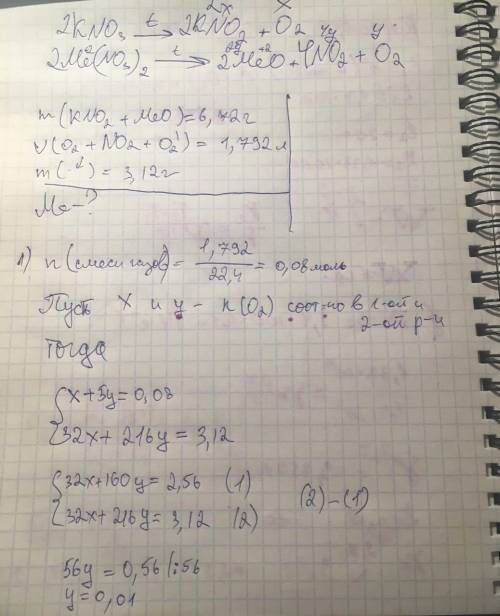 2x x
2KNO₃ —t→ 2KNO₂ + O₂ 4y y
2Me(NO₃)₂ —t→ 2MeO + 4NO₂ + O₂
m(KNO₂ + MeO) = 6,72 г
V(O₂ + NO₂ + O₂') = 1,792 л
m( ) = 3,12 г
Me - ?
1) n(смеси газов) = 1,792/22,4 = 0,08 моль
Пусть x и y - n(O₂) соот-но в 1-ой и
2-ой р-и
Тогда
{ x + 5y = 0,08
32x + 216y = 3,12
{ 32x + 160y = 2,56 (1)
32x + 216y = 3,12 (2) (2) - (1)
56y = 0,56 |:56
y = 0,01